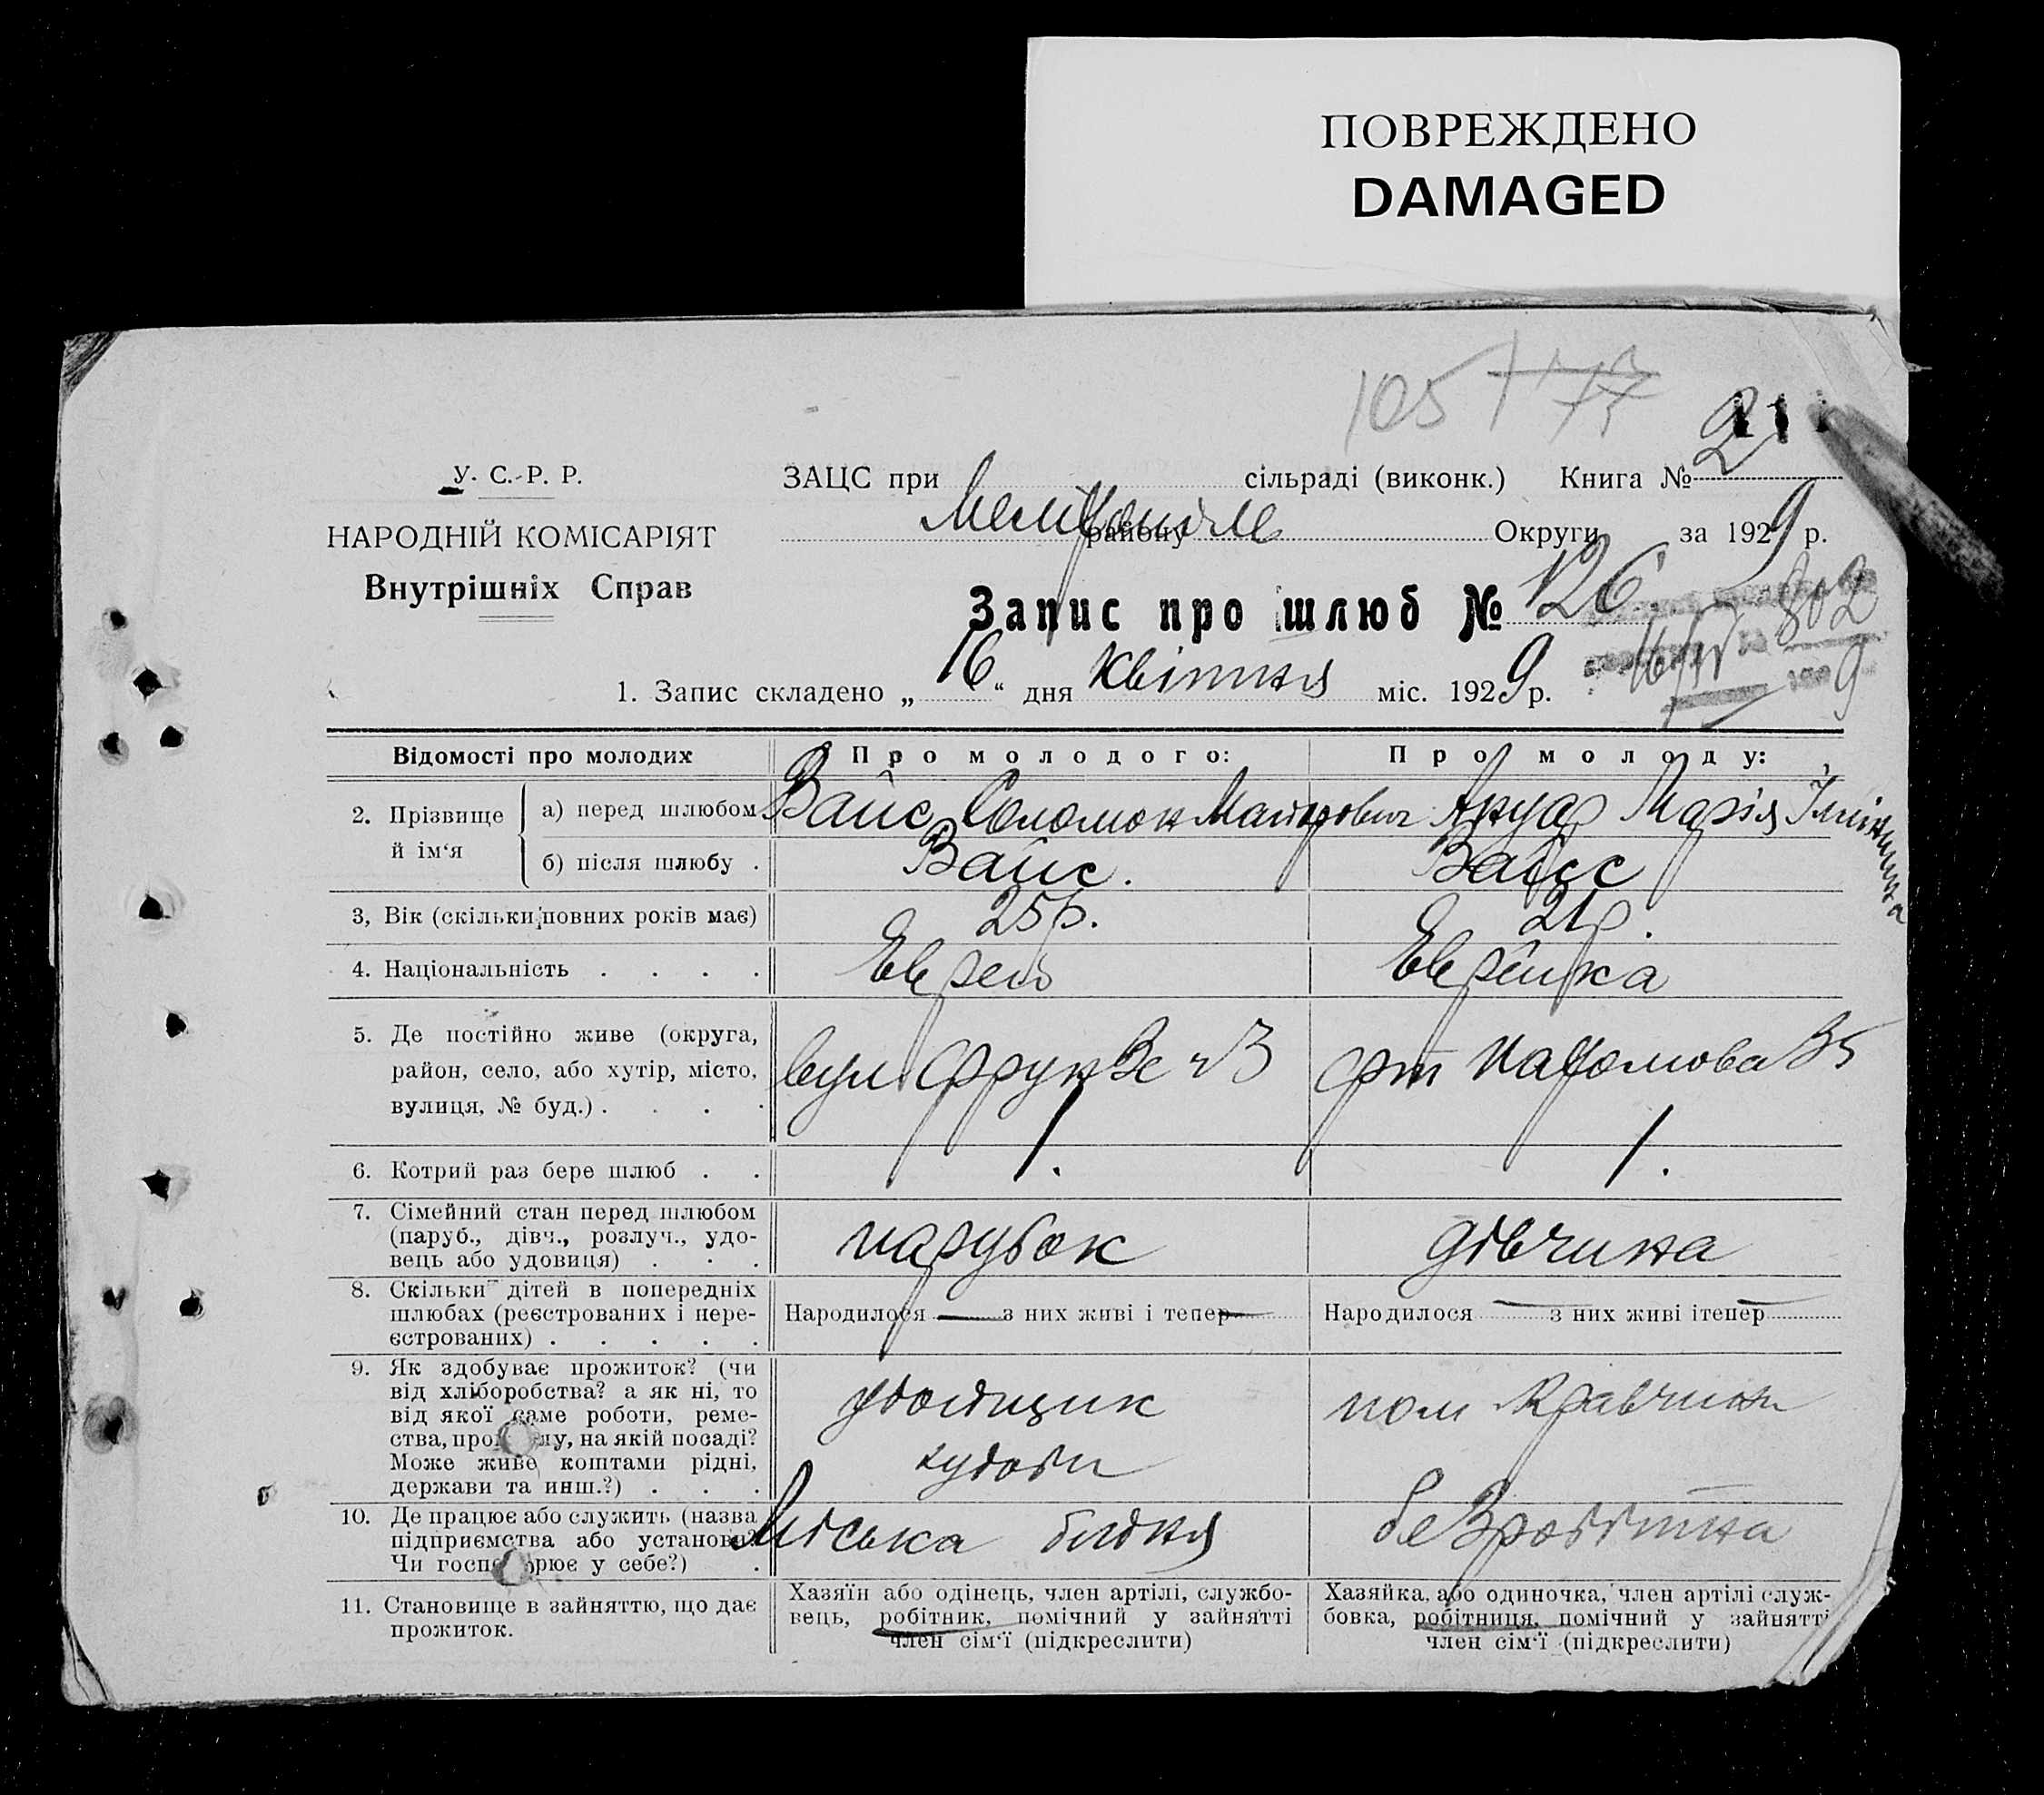 ПОВРЕЖДЕНО
DAMAGED
105
У. С.-Р. Р.
НАРОДНІЙ КОМІСАРІЯТ
Внутрішніх Справ
ЗАЦС при сільраді (виконк.) Книга № 2
району Округи за 1929 р.
Запис про шлюб № 126
802
1. Запис складено „16“ дня квітня міс. 1929 р.
Відомості про молодих Про молодого: Про молоду:
2. Прізвище й ім‘я
а) перед шлюбом Вайс Соломон Марія
б) після шлюбу . Вайс. Вайс
3, Вік (скільки повних років має) 25 р. 21 р.
4. Національність . . . . Еврей Еврейка
5. Де постійно живе (округа,
район, село, або хутір, місто,
вулиця, № буд.) . . . .
вул Фрунзе 35
6. Котрий раз бере шлюб . . 1. 1.
7. Сімейний стан перед шлюбом
(паруб., дівч., розлуч., удо-
вець або удовиця) . . .
парубок дівчина
8. Скільки дітей в попередніх
шлюбах (реєстрованих і нере-
єстрованих) . . . . .
Народилося — з них живі і тепер — Народилося — з них живі ітепер —
9. Як здобуває прожиток? (чи
від хліборобства? а як ні, то
від якої саме роботи, реме-
ства, про лу, на якій посаді?
Може живе коштами рідні,
держави та инш.?) . . .
пом
10. Де працює або служить (назва
підприємства або установи?
Чи госп рює у себе?) .
Міська бидня безробітна
11. Становище в зайняттю, що дає
прожиток.
Хазяїн або одінець, член артілі, службо-
вець, робітник, помічний у зайнятті
член сім‘ї (підкреслити)
Хазяйка, або одиночка, член артілі служ-
бовка, робітниця, помічний у зайнятті
член сім‘ї (підкреслити)